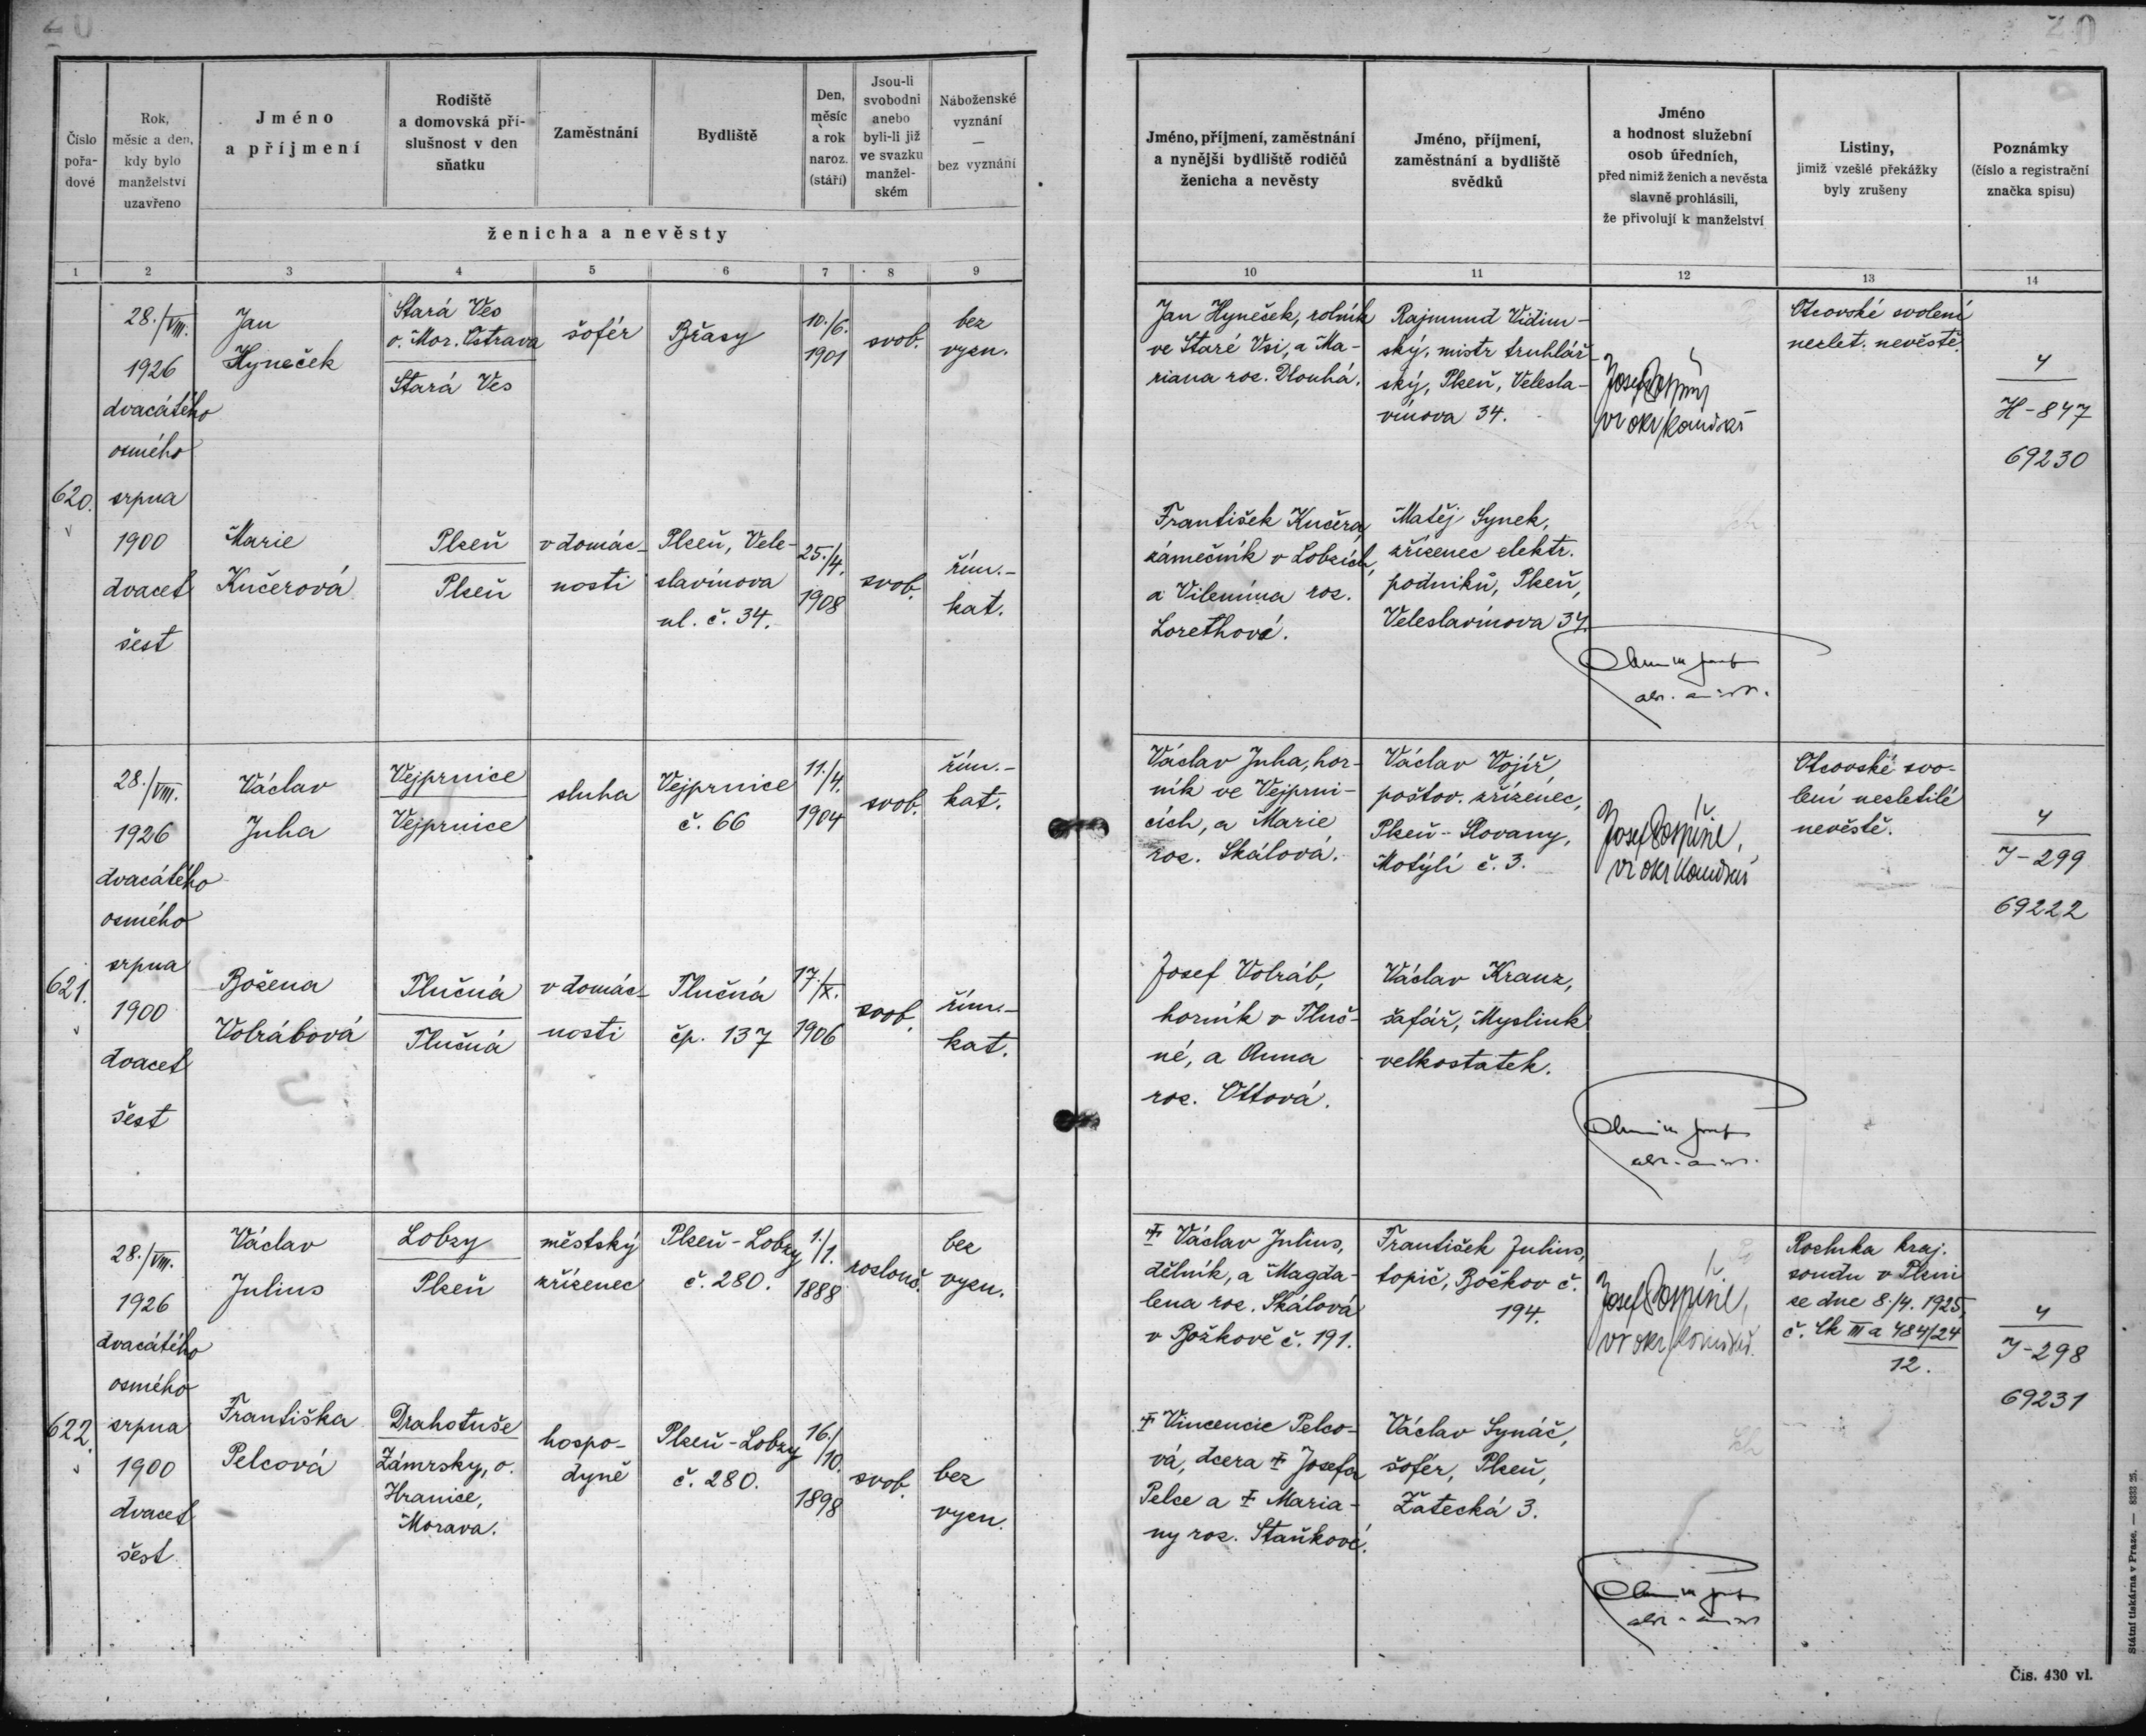 20
20
Číslo pořadové
Rok, měsíc a den, kdy bylo manželství uzavřeno
Jméno a příjmení
Rodiště a domovská příslušnost v den sňatku
Zaměstnání
Bydliště
Den, měsíc a rok naroz. (stáří)
Jsou-li svobodni anebo byli-li již ve svazku manželském
Náboženské vyznání — bez vyznání
ženicha a nevěsty
Jméno, příjmení, zaměstnání a nynější bydliště rodičů ženicha a nevěsty
Jméno, příjmení, zaměstnání a bydliště svědků
Jméno a hodnost služební osob úředních, před nimiž ženich a nevěsta slavně prohlásili, že přivolují k manželství
Listiny, jimiž vzešlé překážky byly zrušeny
Poznámky (číslo a registrační značka spisu)
1 2 3 4 5 6 7 8 9 10 11 12 13 14
620.
28./VIII.
1926
dvacátého
osmého
srpna
1900
dvacet
šest
Jan
Hyneček
Stará Ves
o. Mor. Ostrava
Stará Ves
šofér
Břasy
10./6.
1901
svob.
bez
vyzn.
Jan Hyneček, rolník
ve Staré Vsi, a Ma-
riana roz. Dlouhá.
Rajmund Vidim-
ský, mistr truhlář-
ský, Plzeň, Velesla-
vínova 34.
Josef Pospíšil
vr. okr. komisař
Otcovské svolení
nezlet. nevěstě.
4
H-847
69230
Marie
Kučerová
Plzeň
Plzeň
v domác-
nosti
Plzeň, Vele-
slavínova
ul. č. 34.
25./4.
1908
svob.
řím.-
kat.
František Kučera,
zámečník v Lobzích,
a Vilemína roz.
Lorethová.
Matěj Synek,
zřízenec elektr.
podniků, Plzeň,
Veleslavínova 34.
621.
28./VIII.
1926
dvacátého
osmého
srpna
1900
dvacet
šest
Václav
Juha
Vejprnice
Vejprnice
sluha
Vejprnice
č. 66
11./4.
1904
svob.
řím.-
kat.
Václav Juha, hor-
ník ve Vejprni-
cích, a Marie
roz. Skálová.
Václav Vojíř,
poštov. zřízenec,
Plzeň-Slovany,
Motýlí č. 3.
Josef Pospíšil,
vr. okr. komisař
Otcovské svo-
lení nezletilé
nevěstě.
4
J-299
69222
Božena
Volrábová
Tlučná
Tlučná
v domác-
nosti
Tlučná
čp. 137
17./X.
1906
svob.
řím.-
kat.
Josef Volráb,
horník v Tluč-
né, a Anna
roz. Ottová.
Václav Kranz,
šafář, Myslink
velkostatek.
622.
28./VIII.
1926
dvacátého
osmého
srpna
1900
dvacet
šest
Václav
Julius
Lobzy
Plzeň
městský
zřízenec
Plzeň-Lobzy
č. 280.
1./1.
1888
rozlouč.
bez
vyzn.
✝ Václav Julius,
dělník, a Magda-
lena roz. Skálová
v Božkově č. 191.
František Julius,
topič, Božkov č.
194.
Josef Pospíšil,
vr. okr. komisař.
Rozluka kraj.
soudu v Plzni
ze dne 8./4. 1925,
č. Ck III a 484/24
12.
4
J-298
69231
Františka
Pelcová
Drahotuše
Zámrsky, o.
Hranice,
Morava.
hospo-
dyně
Plzeň-Lobzy
č. 280.
16./10.
1898
svob.
bez
vyzn.
✝ Vincencie Pelco-
vá, dcera ✝ Josefa
Pelce a ✝ Maria-
ny roz. Staňkové.
Václav Synáč,
šofér, Plzeň,
Žatecká 3.
Státní tiskárna v Praze. — 8333 25.
Čís. 430 vl.